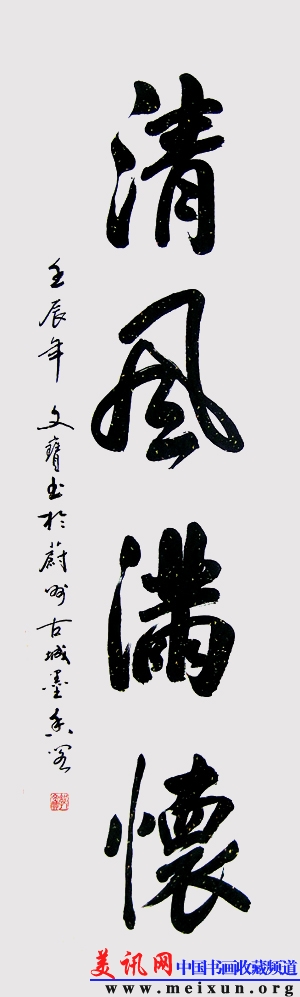 清風滿懷
壬辰年 文寶书於蔚州古城墨香阁
美讯网 中国书画收藏频道
www.meixun.org